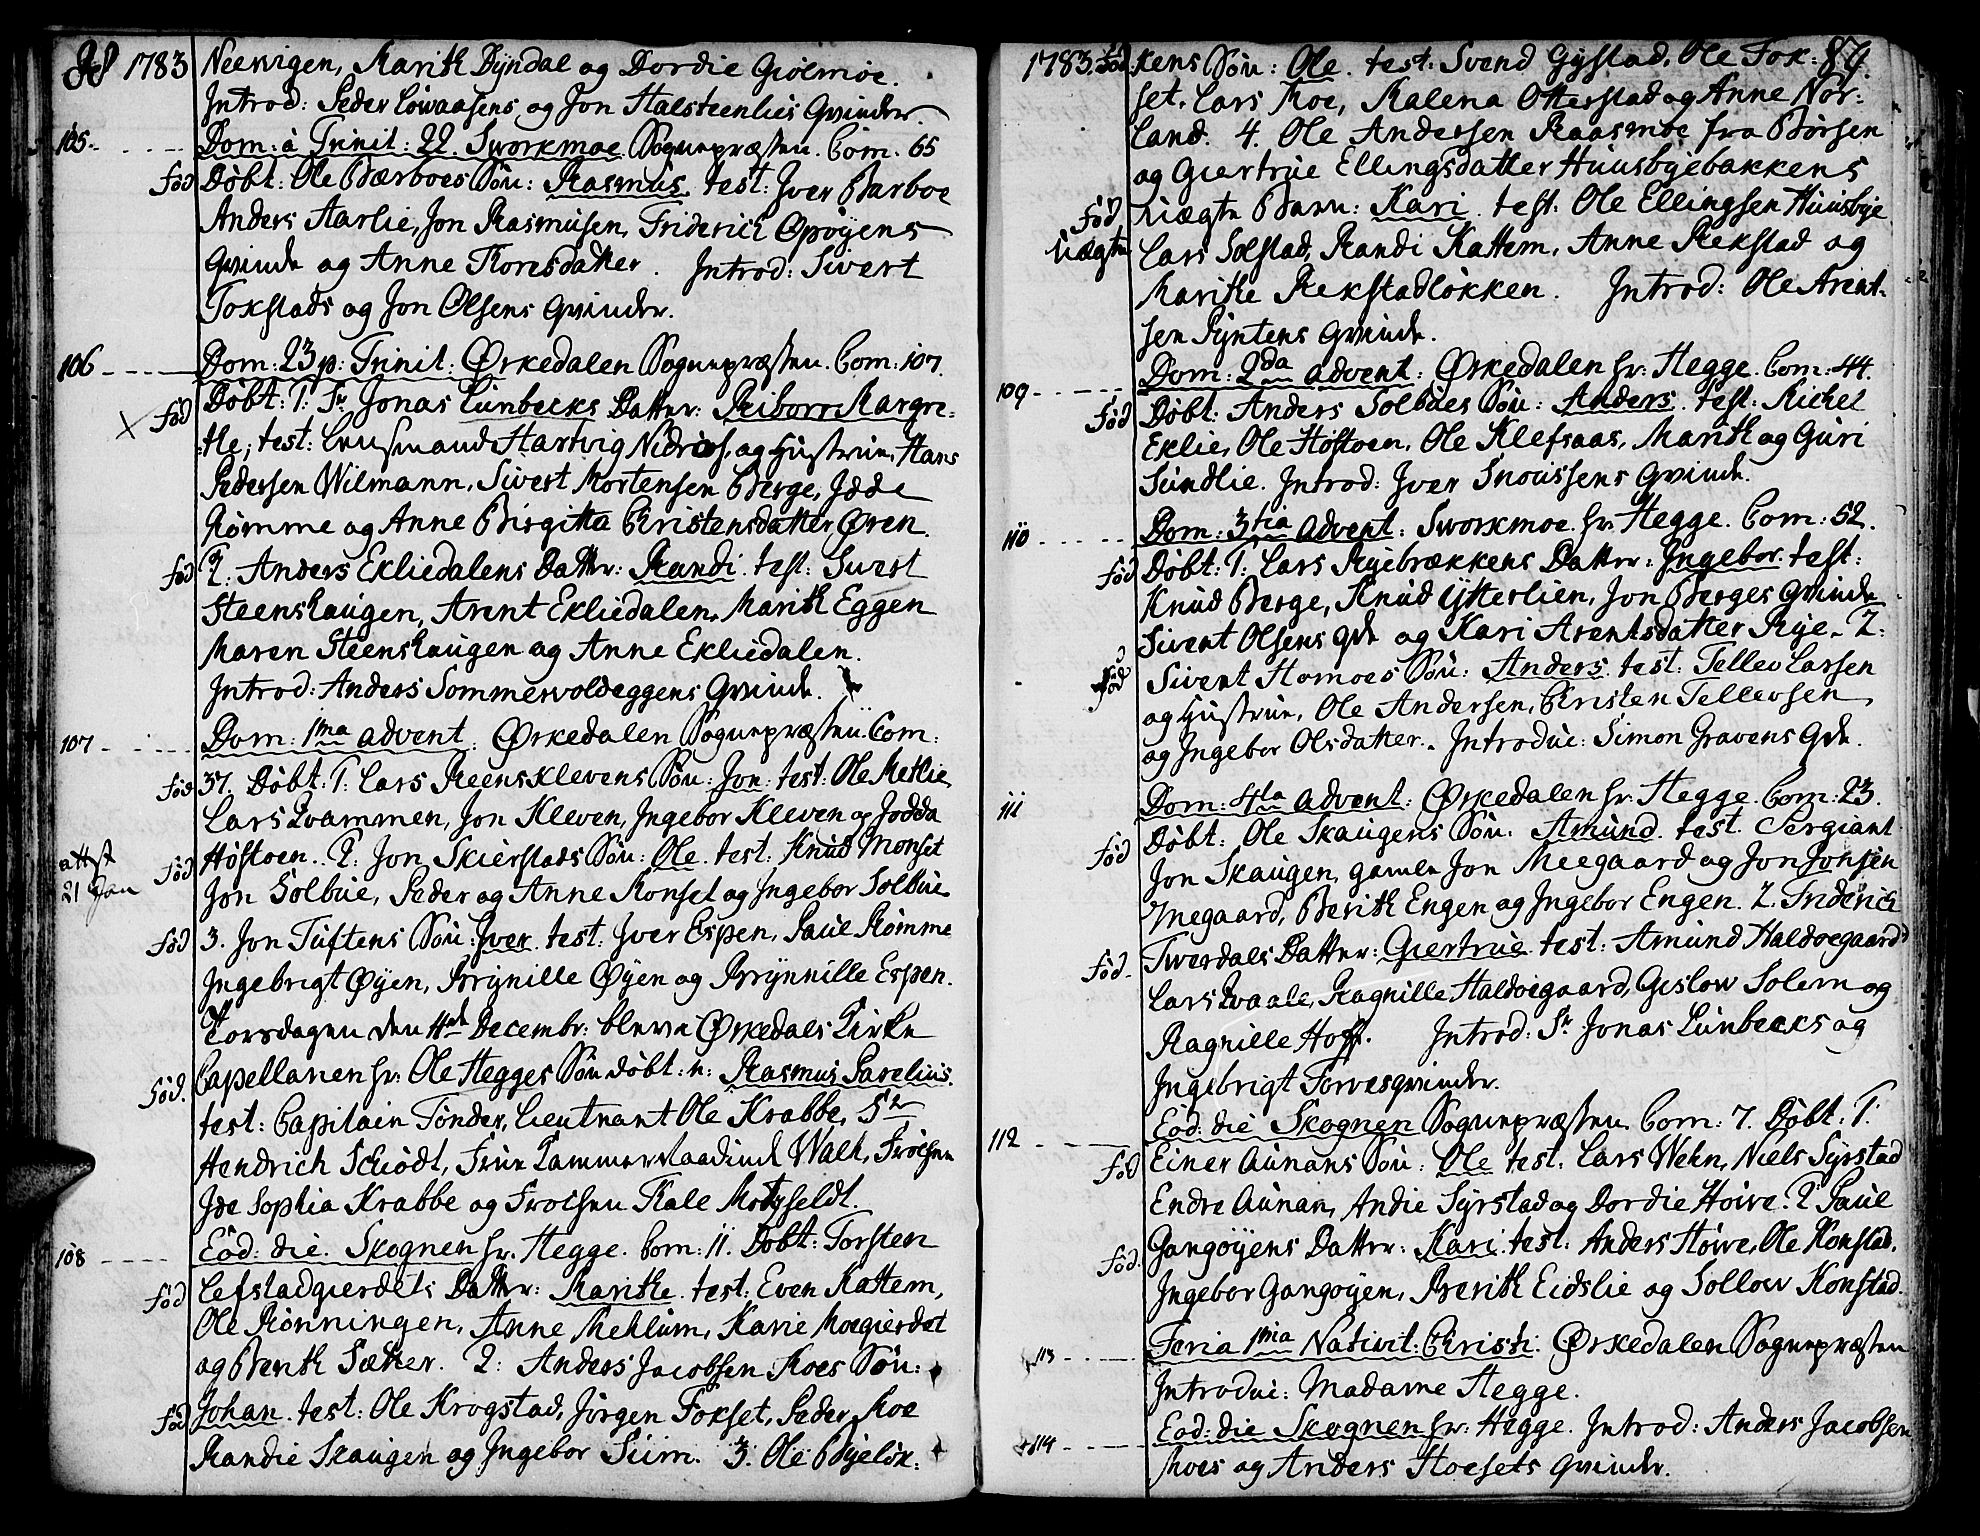 88 1783 Neervigen, Marith Dyndal og Dordie Giølmoe.
Introd: Peder Løwaasens og Jon Halsteenlies Qvinder.
105. Dom: à Trinit: 22. Sworkmoe Sognepræsten. Com. 65
fød Døbt: Ole Bærboes Søn: Rasmus. test: Iver Bærboe
Anders Aarlie, Jon Rasmusen, Friderich Opøyens
Qvinde og Anne Toresdatter. Introd: Sivert
Tokstads og Jon Olsens Qvinder.
106 Dom: 23 p: Trinit: Ørkedalen Sognepræsten. Com: 107.
fød Døbt: 1: Sr Jonas Lünbecks Datter: Riborr Margre-
the; test: Lensmand Hartvig Nidrios, og Hustrue, Hans
Pedersen Wilmann, Sivert Mortensen Berge, Jdde
Rømme og Anne Birgitta Christensdatter Øren.
fød 2: Anders Ekliedalens Datter: Randi. test: Sivert
Steenshaugen, Arent Ekliedalen, Marith Eggen
Maren Steenshaugen og Anne Ekliedalen.
Introd: Anders Sommervoldeggens Qvinde.
107 Dom: 1ma advent: Ørkedalen Sognepræsten. Com:
fød 37. Døbt: 1: Lars Reensklevens Søn: Jon. test: Ole Metlie
Lars Qvammen, Jon Kleven, Ingebor Kleven og Jødda
attest fød Høstoen. 2: Jon Skierstads Søn: Ole. test: Knud Monset
21 Jan Jon Solbue, Peder og Anne Monset og Ingebor Solbue
fød 3. Jon Tuftens Søn: Iver. test: Iver Espen, Paul Rømme
Ingebrigt Øyen, Brynille Øyen og Brynnille Espen.
Torsdagen den 4de Decembr: bleve Ørkedals Kirke
fød. Capellanen hr: Ole Hegges Søn døbt: n: Rasmus Parelius.
test: Capitain Tønder, Lieutnant Ole Krabbe, Sr
Hendrich Schiødt, Frue Kammerraadinde Walt, Frøiken
Ide Sophia Krabbe og Frøiken Kale Motzfeldt.
108 Eod: die. Skognen hr. Hegge. Com: 11. Døbt: Torsten
fød Lefstadgierdets Datter: Marithe. test: Even Kattem,
Ole Rønningen, Anne Mehlum, Karie Moegierdet
og Berith Sætter. 2: Anders Jacobsen Moes Søn:
fød Johan. test: Ole Krogstad, Jørgen Fokset, Peder Moe
Randie Skaugen og Ingebor Siim. 3. Ole Byeløk:
1783. fød kens Søn: Ole. test: Svend Gystad, Ole Fok: 89.
set, Lars Moe, Malena Otterstad og Anne Nor:
land. 4. Ole Andersen Raasmoe fra Børsen
og Giertrue Ellingsdatter Huusbyebakkens
fød uægte Barn: Kari. test: Ole Ellingsen Huusbye
uægte Lars Solstad, Randi Kattem, Anne Rekstad og
Marithe Rekstadløkken. Introd: Ole Arent-
sen Pyntens Qvinde.
109 Dom: 2da advent: Ørkedalen hr: Hegge. Com: 44.
fød Døbt: Anders Solbues Søn: Anders. test: Michel
Eklie, Ole Høstoen, Ole Klefsaas, Marith og Guri
Sundlie. Introd: Iver Snoussens Qvinde.
110 Dom: 3tia advent: Sworkmoe. hr: Hegge. Com: 52.
fød Døbt: 1: Lars Ryebrækkens Datter: Ingebor. test:
Knud Berge, Knud Ytterlien, Jon Berges Qvinde
Sivert Olsens Qde og Kari Arentsdatter Rye. 2:
fød Sivert Homoes Søn: Anders. test: Tellev Larsen
og Hustrue, Ole Andersen, Christen Tellevsen
og Ingebor Olsdatter. Introdue: Simon Gravens Qde.
111 Dom: 4ta advent: Ørkedalen hr: Hegge. Com: 23.
fød Døbt: Ole Skaugens Søn: Amund. test. Sergiant
Jon Skaugen, gamle Jon Meegaard og Jon Jonsen
Megaard, Berith Engen og Ingebor Engen. 2. Friderich
fød. Tverdals Datter: Giertrue. test: Amund Haldoegaard
Lars Qvaale, Ragnille Haldoegaard, Gislow Solem og
Ragnille Hoff. Introd: Sr Jonas Lünbecks og
Ingebrigt Torves Qvinder.
112 Eod: die Skognen Sognepræsten. Com: 7. Døbt: 1:
fød Einer Aunans Søn: Ole. test: Lars Wehn, Niels Syrstad
Endre Aunan, Andie Syrstad og Dordie Howe. 2: Paul
fød. Gangøyens Datter: Kari. test: Anders Howe, Ole Konstad,
Ingebor Gangøyen, Berith Eidslie og Sollow Konstad.
113 Feria 1ma Nativit: Christi: Ørkedalen Sognepræsten
Introdue: Madame Hegge.
114 Eod: die Skognen hr: Hegge. Introd: Anders Jacobsen
Moes og Anders Hoesets Qvinder.